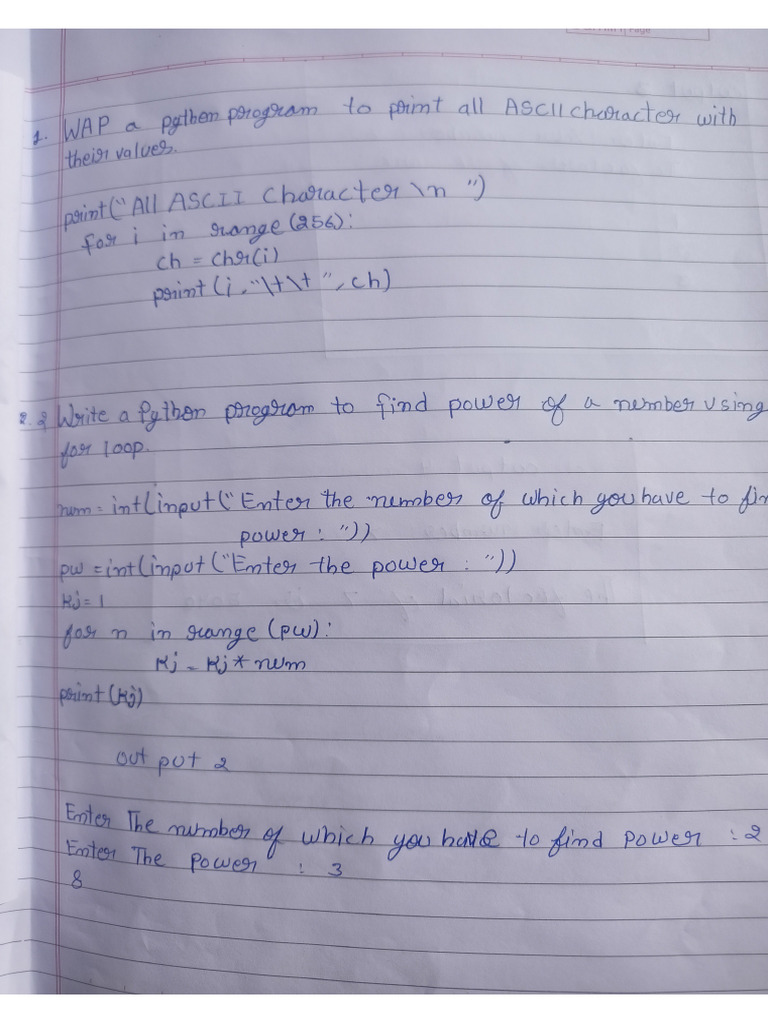 1. WAP a python program to print all ASCII character with
their values.
print("All ASCII Character \n ")
for i in range(256):
ch = chr(i)
print(i,"\t\t ",ch)
2. 2 Write a Python program to find power of a number using
for loop.
num = int(input("Enter the number of which you have to fin
power : "))
pw = int(input("Enter the power : "))
Kj = 1
for n in range (pw):
Kj = Kj * num
print(Kj)
out put 2
Enter The number of which you have to find power : 2
Enter The power : 3
8